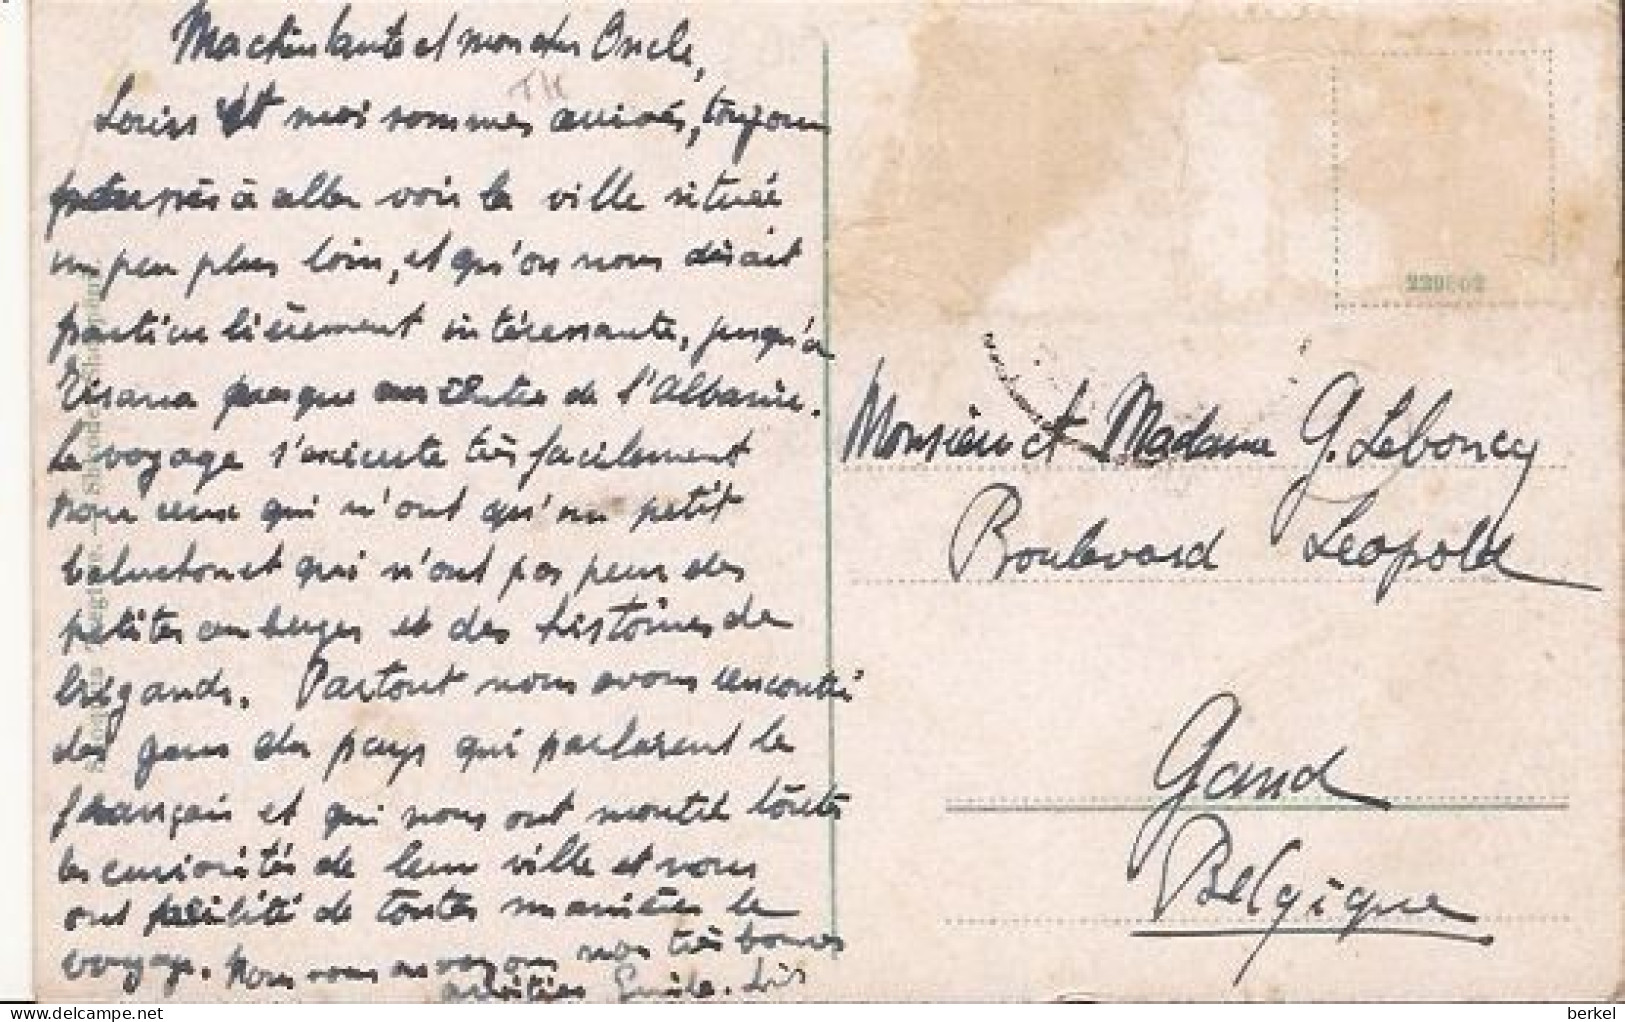 Ma chère tante et mon cher Oncle,
Louis et moi sommes arrivés, toujours
près à aller voir la ville située
un peu plus loin, et qu'on nous disait
particulièrement intéressante, jusqu'à
Tirana presque au centre de l'Albanie.
Le voyage s'exécute très facilement
pour ceux qui n'ont qu'un petit
baluchon et qui n'ont pas peur des
petites auberges et des histoires de
brigands. Partout nous avons rencontré
des gens du pays qui parlaient le
français et qui nous ont montré toutes
les curiosités de leur ville et nous
ont facilité de toutes manières le
voyage. Nous vous envoyons nos très bonnes
amitiés
239802
Monsieur et Madame G. Leboucq
Boulevard Léopold
Gand
Belgique
berkel